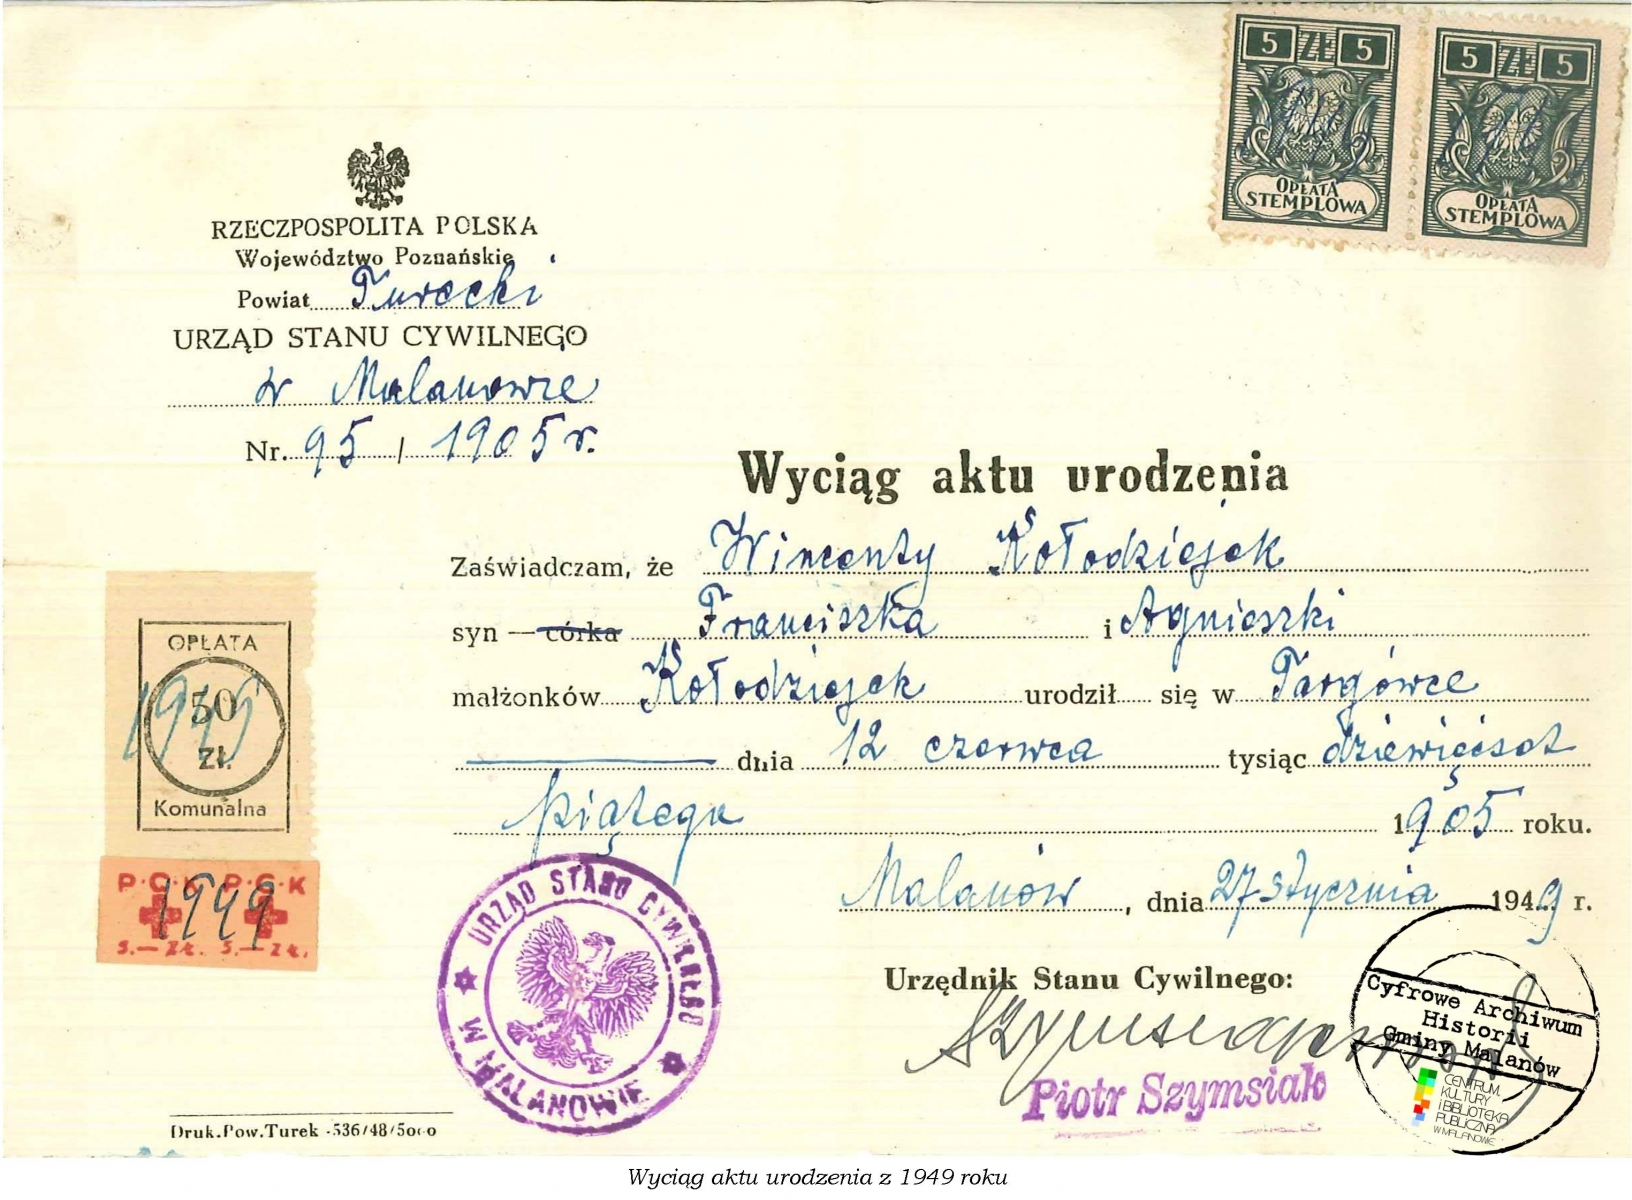 5 ZŁ 5
OPŁATA
STEMPLOWA
5 ZŁ 5
OPŁATA
STEMPLOWA
RZECZPOSPOLITA POLSKA
Województwo Poznańskie
Powiat Turecki
URZĄD STANU CYWILNEGO
w Malanowie
Nr. 95 / 1905 r.
Wyciąg aktu urodzenia
Zaświadczam, że Wincenty Kołodziejek
syn — córka Franciszka i Agnieszki
małżonków Kołodziejek urodził się w Targówce
dnia 12 czerwca tysiąc dziewięćset
piątego 1905 roku.
Malanów, dnia 27 stycznia 1949 r.
Urzędnik Stanu Cywilnego:
Piotr Szymsiak
OPŁATA
50
Zł.
Komunalna
P·C·K P·C·K
1949
5.— Zł. 5.— Zł.
URZĄD STANU CYWILNEGO
W MALANOWIE
Cyfrowe Archiwum
Historii
Gminy Malanów
CENTRUM
KULTURY
I BIBLIOTEKA
PUBLICZNA
W MALANOWIE
Druk.Pow.Turek -536/48/5000
Wyciąg aktu urodzenia z 1949 roku